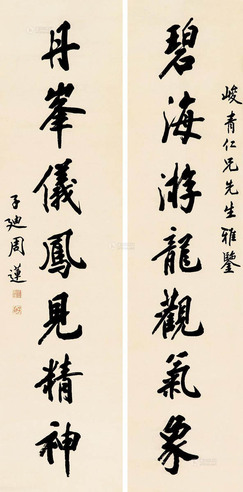 峻青仁兄先生雅鑒
碧海游龍觀氣象
丹峯儀鳳見精神
子迪周蓮